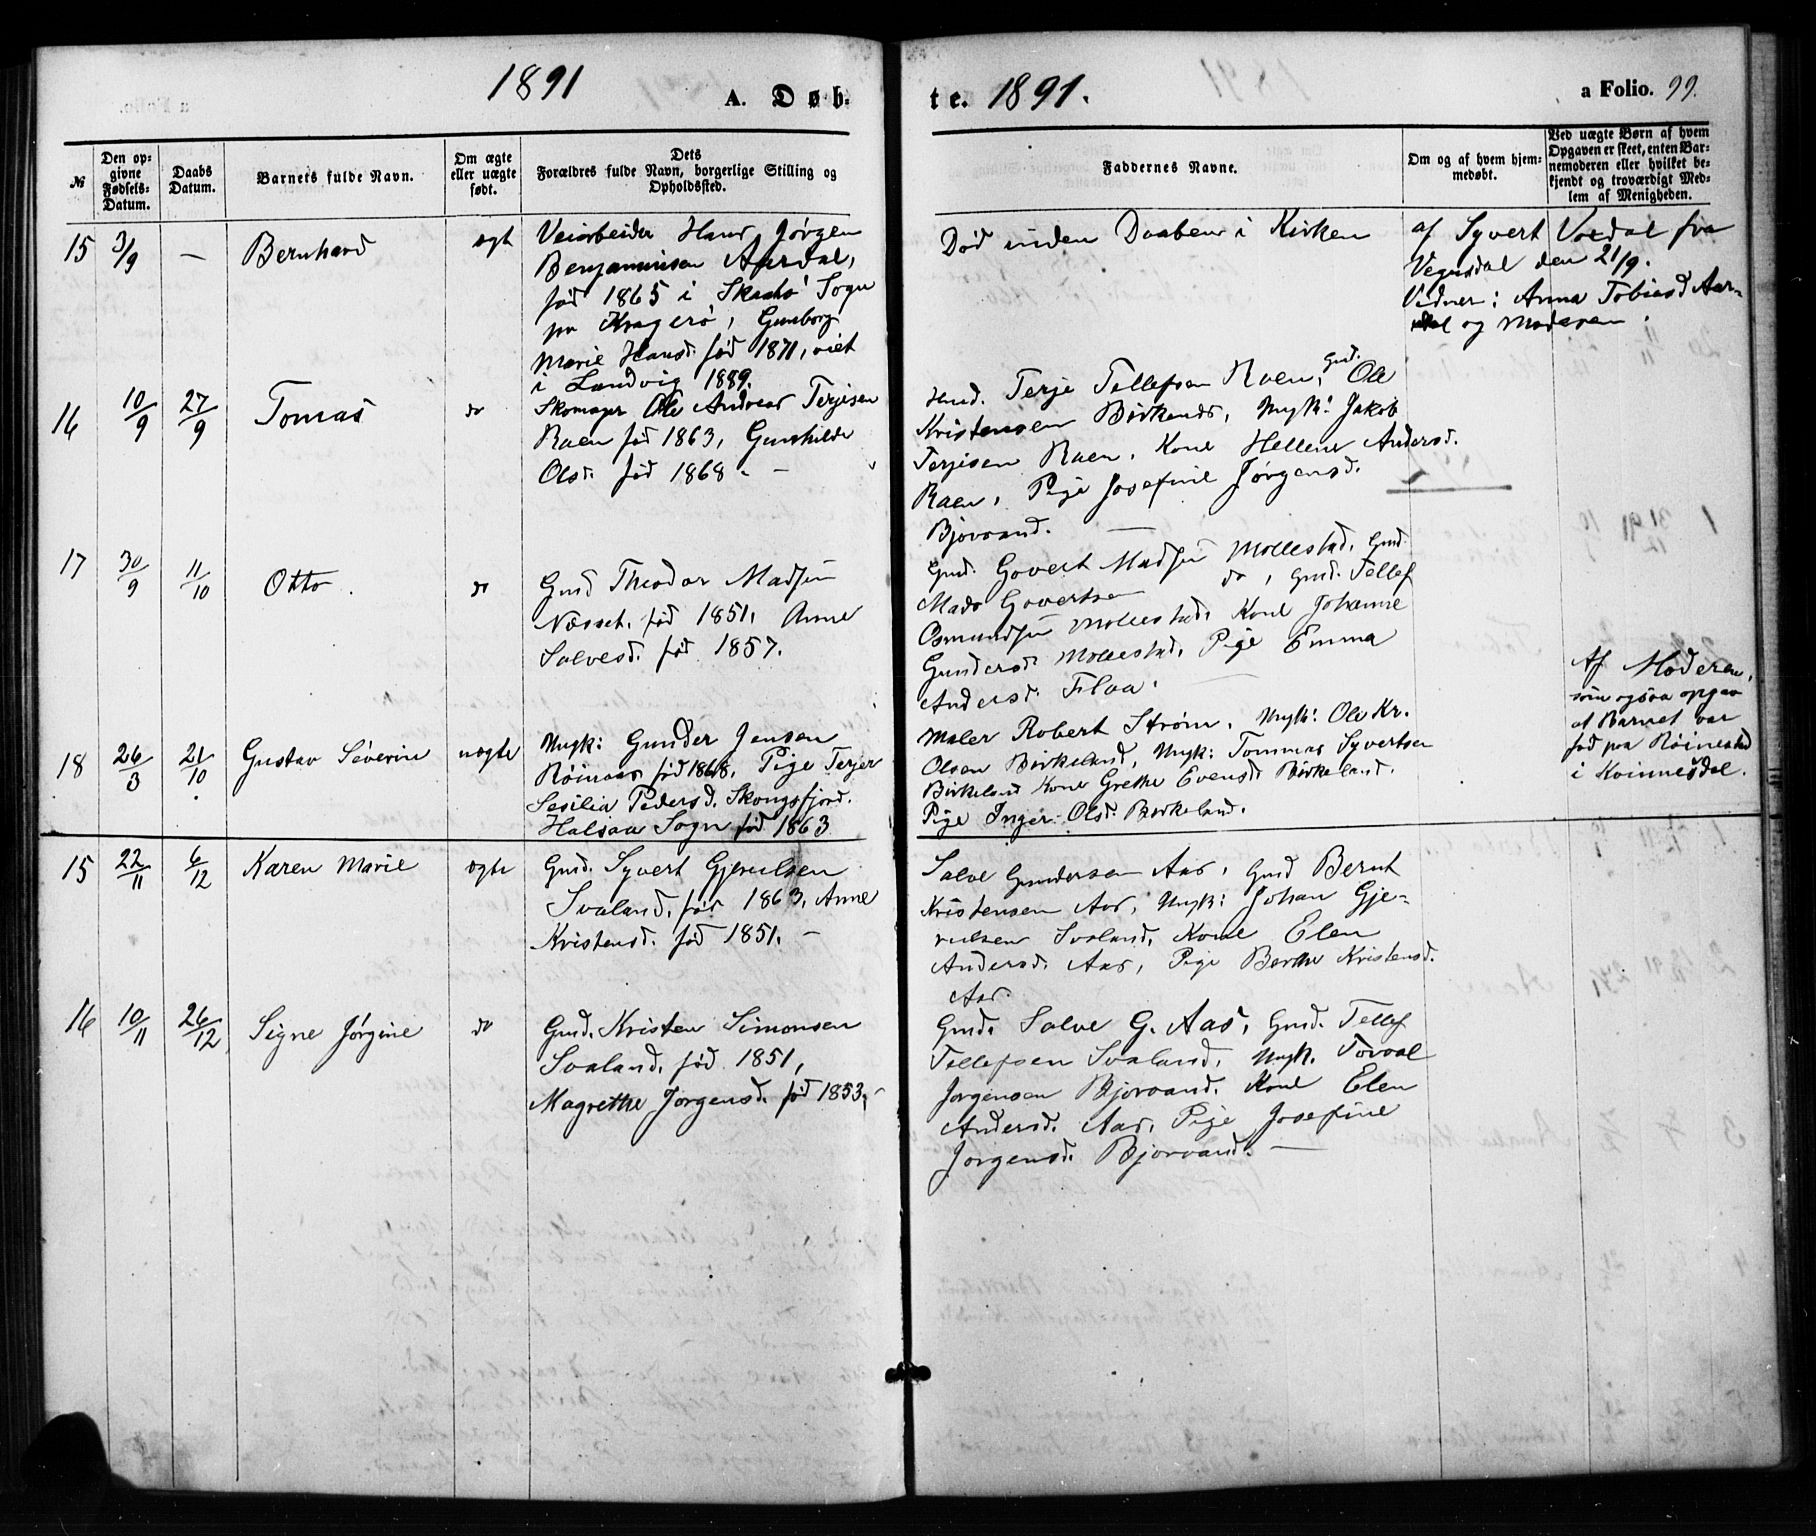 1891
A. Døb-
№
Den op-
givne
Fødsels-
Datum.
Daabs
Datum.
Barnets fulde Navn.
Om ægte
eller uægte
født.
Dets
Forældres fulde Navn, borgerlige Stilling og
Opholdssted.
15 3/9 — Bernhard ægte
Veiarbeider Hans Jørgen
Benjaminsen Aardal,
fød 1865 i Skaatø Sogn
pr Kragerø, Gunborg
Marie Hansd. fød 1871, viet
i Landvig 1889.
16 10/9 27/9 Tomas do
Skomager Ole Andreas Terjesen
Raen fød 1863, Gunhilde
Olsd. fød 1868. —
17 30/9 11/10 Otto. do
Gmd Theodor Madsen
Næsset. fød 1851. Anne
Salvesd. fød 1857.
18 26/3 21/10 Gustav Severin uægte
Ungk: Gunder Jensen
Røinaas fød 1868, Pige Terjer
Sesilia Pedersd. Skongsfjord.
Halsaa Sogn fød 1863
15 22/11 6/12 Karen Marie ægte
Gmd. Syvert Gjerulsen
Svaland. fød 1863. Anne
Kristensd. fød 1851. —
16 10/11 26/12 Signe Jørgine do
Gmd. Kristen Simonsen
Svaland. fød 1851,
Magrethe Jørgensd. fød 1853. —
te. 1891.
a Folio. 99.
Faddernes Navne.
Om og af hvem hjem-
medøbt.
Ved uægte Børn af hvem
Opgaven er skeet, enten Bar-
nemoderen eller hvilket be-
kjendt og troværdigt Med-
lem af Menigheden.
Død inden Daaben i Kirken
af Syvert Vordal fra
Vegusdal den 21/9.
Vidner: Anna Tobiasd Aar-
dal og Moderen.
Gmd. Terje Tellefsen Raen, Gmd. Ole
Kristensen Birkenes, Ungk: Jakob
Terjesen Raen. Kone Hellene Andersd.
Raen, Pige Josefine Jørgensd.
Bjorvand. —
Gmd. Govert Madsen Mollestad. Gmd.
Mads Govertsen do, Gmd. Tellef
Osmundsen Mollestad, Kone Johanne
Gundersd. Mollestad, Pige Emma
Andersd. Flaa. —
Maler Robert Strøm. Ungk: Ole Kr.
Olsen Birkeland, Ungk: Tommas Syvertsen
Birkeland Kone Grethe Evensd Birkeland.
Pige Inger Olsd. Birkeland.
Af Moderen,
som ogsaa opgav
at Barnet var
fød paa Røinestad
i Kvinnesdal.
Salve Gundersen Aas, Gmd Bernt
Kristensen Aas, Ungk: Johan Gje-
rulsen Svaland, Kone Elen
Andersd. Aas, Pige Berthe Kristensd.
Aas.
Gmd. Salve G. Aas, Gmd. Tellef
Tellefsen Svaland, Ungk. Torval
Jørgensen Bjorvand. Kone Elen
Andersd. Aas, Pige Josefine
Jørgensd. Bjorvand. —